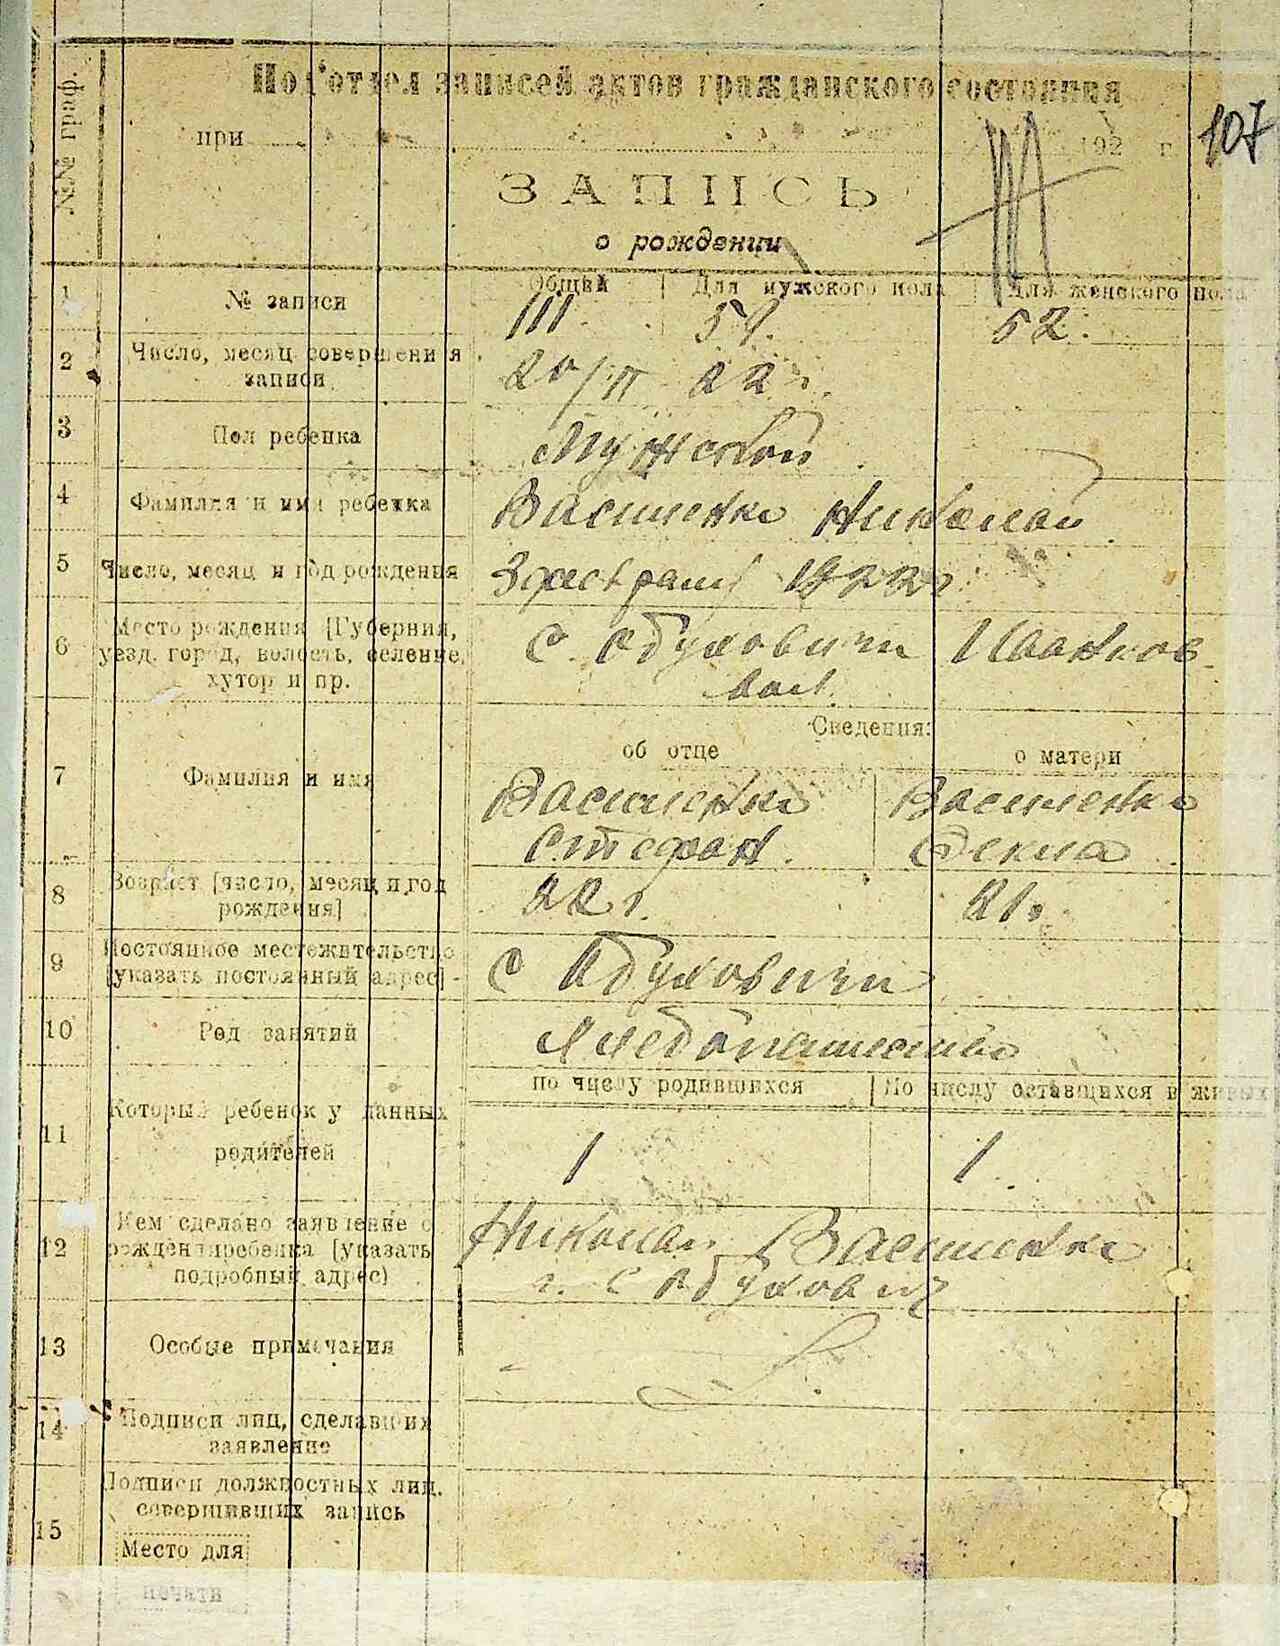 №№ граф.
Под'отдел записей актов гражданского состояния
при 192 г.
107
ЗАПИСЬ
о рождении
1 № записи
Общий Для мужского пола Для женского пола
111. 59. 52.
2 Число, месяц совершения записи
20/II 22 г.
3 Пол ребенка
Мужской
4 Фамилия и имя ребенка
Василенко Николай
5 Число, месяц и год рождения
3 февраля 1922 г
6 Место рождения [Губерния,
уезд, город, волость, селение,
хутор и пр.
с. Обуховичи Иванков
вол.
Сведения:
об отце о матери
7 Фамилия и имя
Василенко Василенко
Стефан. Фекла
8 Возраст [число, месяц и год
рождения]
22 г. 21 г.
9 Постоянное местежительство
[указать постоянный адрес]
с Обуховичи
10 Род занятий
Хлебопашество
по числу родившихся По числу оставшихся в живых
11 Который ребенок у данных
родителей
1 1.
12 Кем сделано заявление о
рождении ребенка [указать
подробный адрес)
Николай Василенко
с Обухович
13 Особые примечания
14 Подписи лиц, сделавших
заявление
15 Подписи должностных лиц,
совершивших запись
Место для
печати